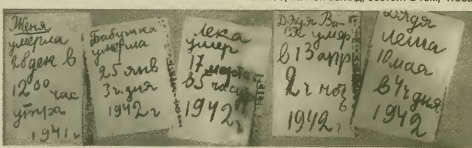 Женя
умерла
28 дек в
12 00 час
утра
1941 г
Бабушка
умерла
25 янв
3 ч. дня
1942 г
Лека
умер
17 марта
в 5 час у
1942 г
Дядя Ва-
ся умер
в 13 апр
2 ч ноч
1942 г
Дядя
Леша
10 мая
в 4 ч дня
1942